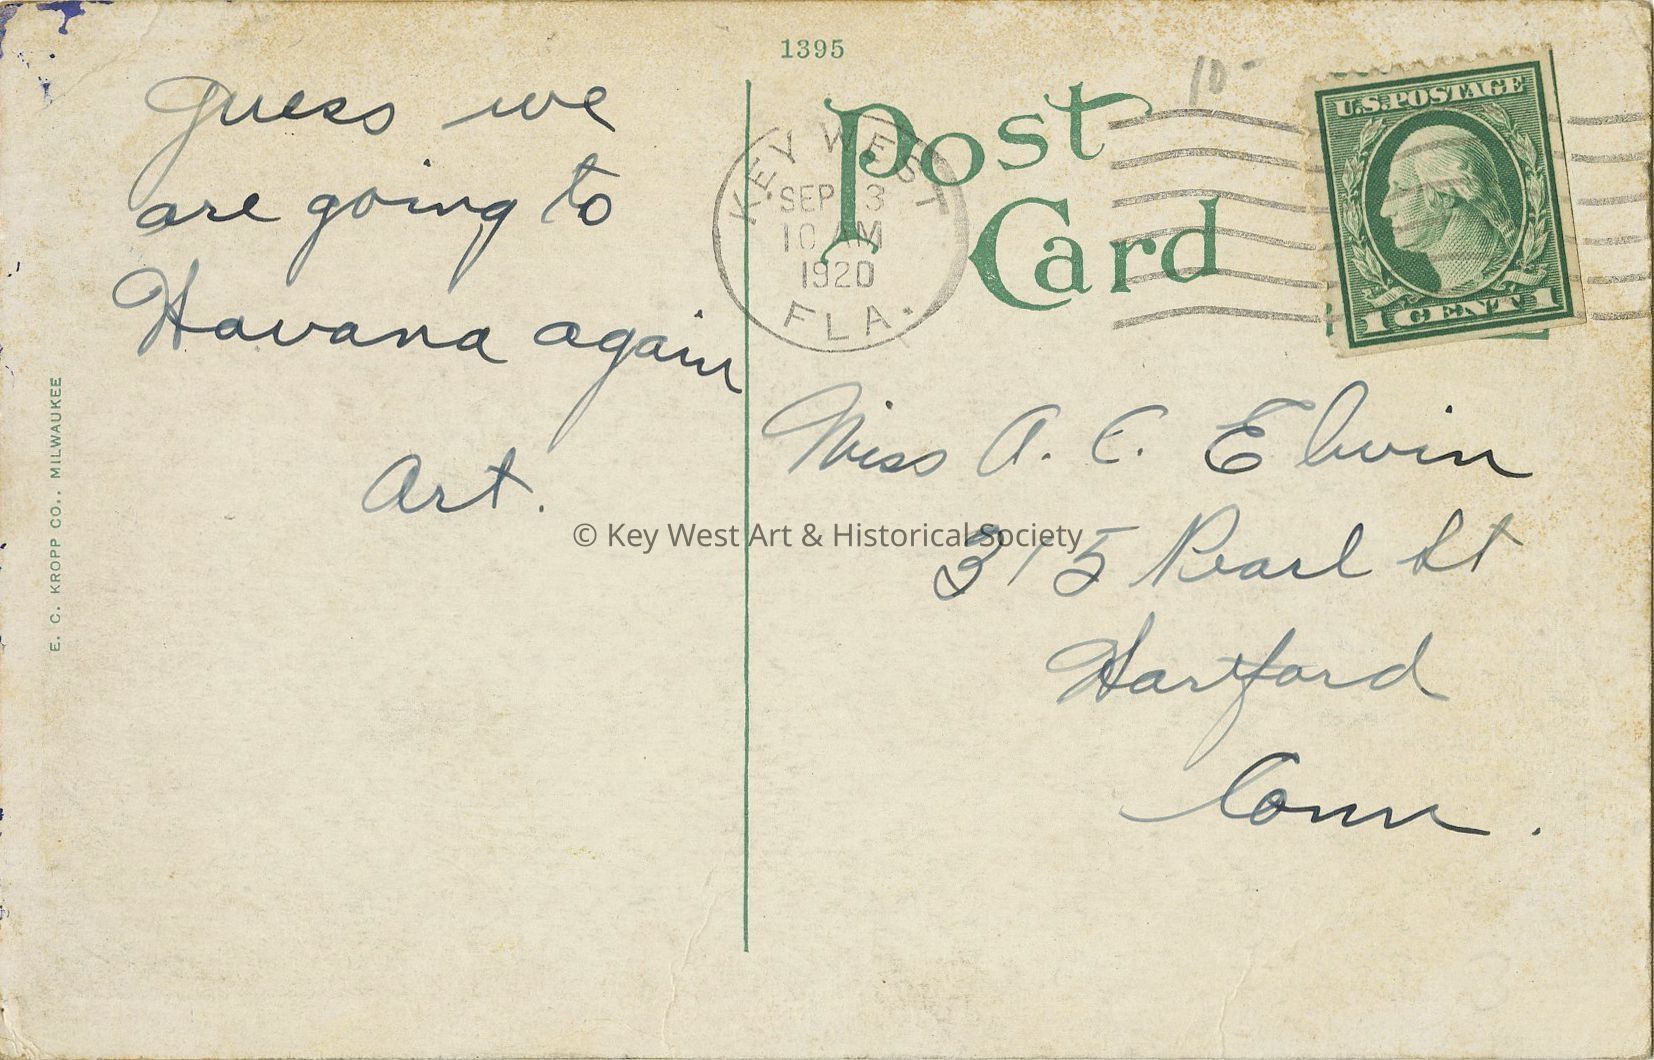 1395
Guess we
are going to
Havana again
Art.
E. C. KROPP CO., MILWAUKEE
Post
Card
KEY WEST
SEP 3
10 AM
1920
FLA.
10-
U.S. POSTAGE
1 CENT 1
Miss A. E. Elwin
315 Pearl St
Hartford
Conn.
© Key West Art & Historical Society